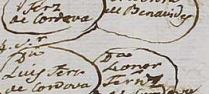 ferz
de Cordova
de Benavides
Dn
Luis fers
de Cordova
Dna
Leonor
Fernz
de Cordova